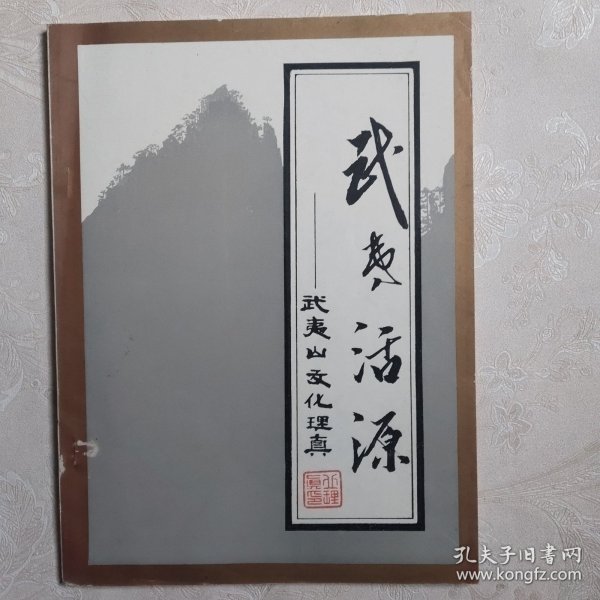 武夷活源
——武夷山文化理真
孔夫子旧书网
www.kongfz.com